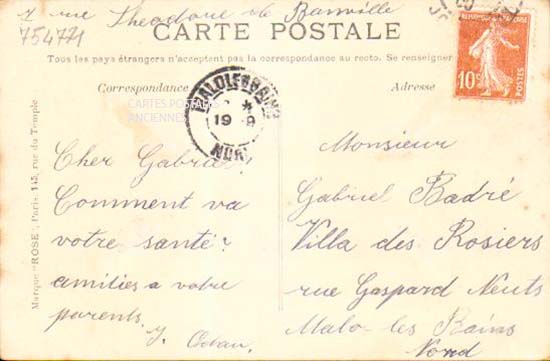 7 rue Theodore de Banville
754771
CARTE POSTALE
Tous les pays étrangers n'acceptent pas la correspondance au recto. Se renseigner
Correspondance
Adresse
10c
POSTES
CARTES POSTALES
ANCIENNES
19
NORD
Marque "ROSE", Paris, 145, rue du Temple
Cher Gabriel
Comment va
votre santé?
amitiés a votre
parents.
Monsieur
Gabriel Badré
Villa des Rosiers
rue Gaspard Neuts
Malo-les Bains
Nord